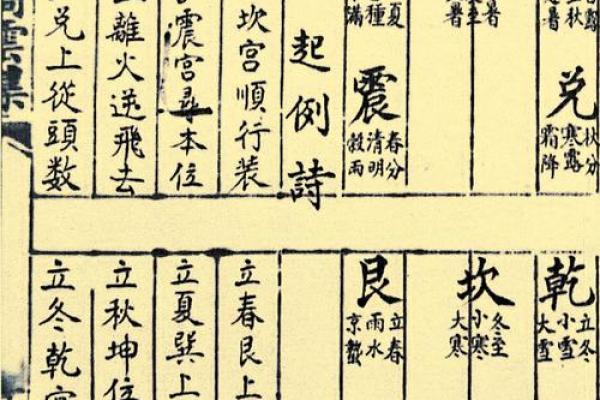 露
立秋
暑
兌
秋分
寒露
霜降
暑
至
暑
夏
種
滿
震
春分
清明
穀雨
起例詩
坎宮順行裝
震宮尋本位
離火逆飛去
兌上從頭数
雲集
乾
立冬
小雪
大雪
坎
冬至
小寒
大寒
艮
立春
雨水
京蟄
立春艮上
立夏巽上
立秋坤位
立冬乾宮